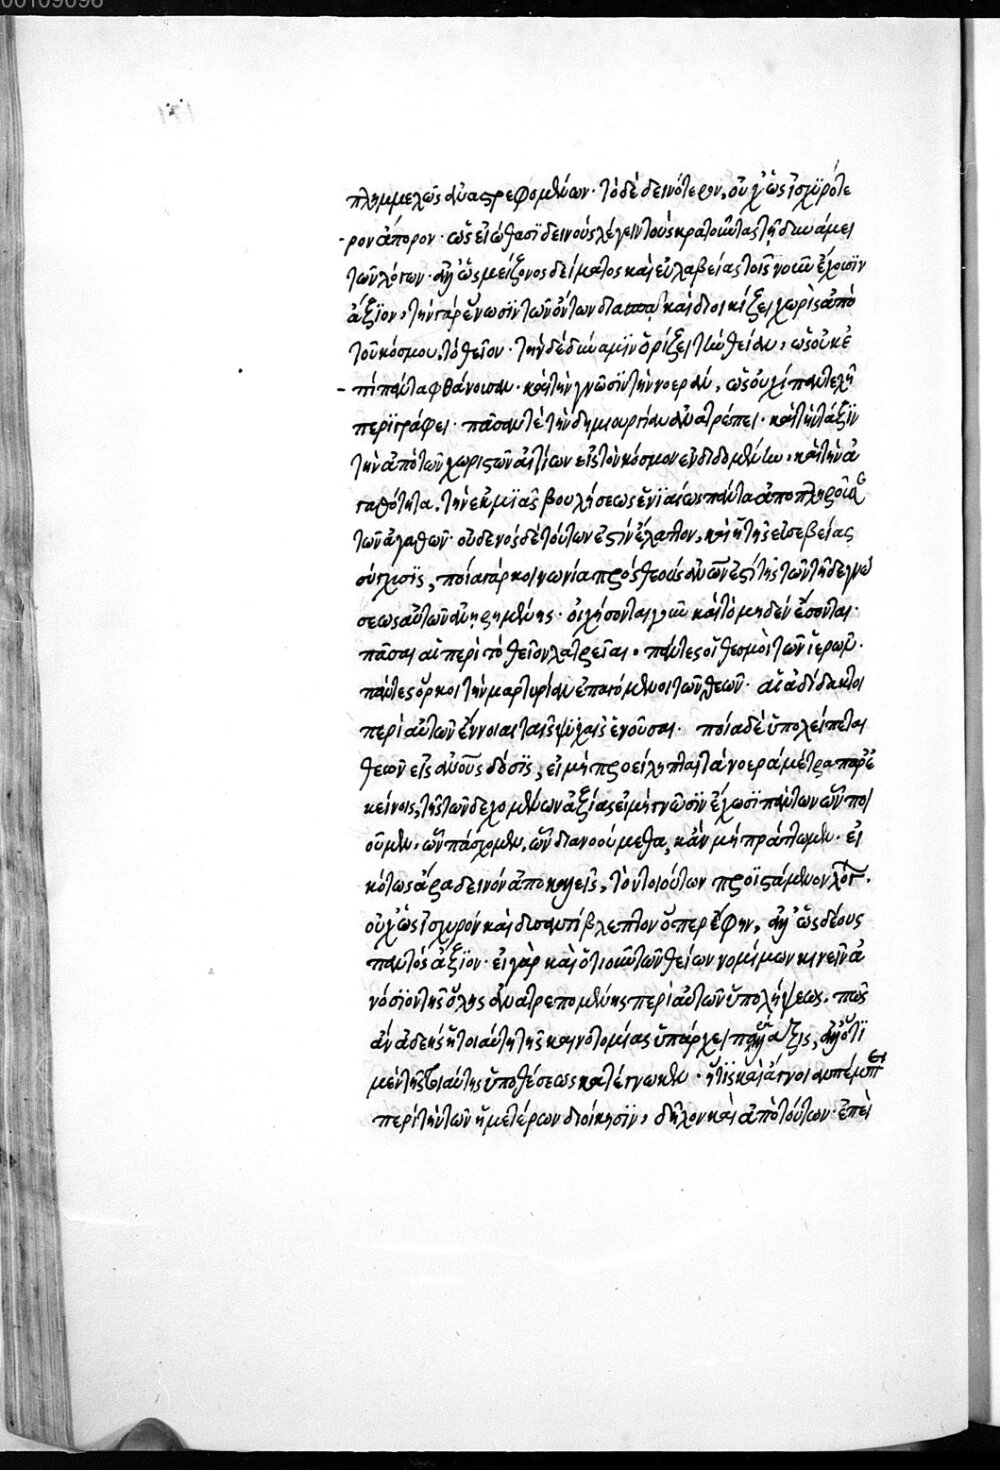 00109096
πλημμελῶς ἀναστρεφομένων· τὸ δὲ δεινότερον, οὐχ ὡς ἰσχϋρότε
-ρον ἄπορον· ὡς εἰώθασϊ δεινοὺς λέγειν τοὺς κρατοῦντας τῇ δυνάμει
τῶν λόγων· ἀλλ' ὡς μείζονος δείματος καὶ εὐλαβείας τοῖς νοῦν ἔχουσϊν
ἄξϊον, τὴν γὰρ ἕνωσϊν τῶν ὄντων διασπᾷ καὶ διοικίζει χωρὶς ἀπὸ
τοῦ κόσμου, τὸ θεῖον· τὴν δὲ δύναμϊν ὁρίζει τὴν θείαν, ὡς οὐκ ἐ
-πὶ πάντα φθάνουσαν· καὶ τὴν γνῶσϊν τὴν νοερὰν, ὡς οὐχὶ παντελῆ
περϊγράφει· πᾶσαν τὲ τὴν δημιουργίαν ἀνατρέπει· καὶ τὴν τάξϊν
τὴν ἀπὸ τῶν χωριστῶν αἰτίων εἰς τὸν κόσμον ἐνδιδομένην, καὶ τὴν ἀ
γαθότητα, τὴν ἐκ μϊᾶς βουλήσεως ἑνϊαίως πάντα ἀποπληροῦσαν
τῶν ἀγαθῶν· οὐδενὸς δὲ τούτων ἐστὶν ἔλαττον, καὶ ἡ τῆς εὐσεβείας
σύγχυσϊς, ποία γὰρ κοινωνία πρὸς θεοὺς ἀνῶν ἐστὶ τῆς τῶν τῇδε γνώ
σεως αὐτῶν ἀνῃρημένης· οἰχήσονται γοῦν καὶ τὸ μηδὲν ἔσονται·
πᾶσαι αἱ περὶ τὸ θεῖον λατρεῖαι· πάντες οἱ θεσμοὶ τῶν ἱερῶν·
πάντες ὅρκοι τὴν μαρτυρίαν ἐπαγόμενοι τῶν θεῶν· αἱ ἀδίδακτοι
περὶ αὐτῶν ἔννοιαι ταῖς ψυχαῖς ἐνοῦσαι· ποία δὲ ὑπολείπεται
θεῶν εἰς ἀνοὺς δόσϊς, εἰ μὴ προείληπται τὰ νοερὰ μέτρα παρ' ἐ
κείνοις, τῆς τῶν δεχομένων ἀξίας εἰ μὴ γνῶσϊν ἔχωσϊ πάντων ὧν ποι
οῦμεν, ὧν πάσχομεν, ὧν διανοούμεθα, κἂν μὴ πράττωμεν· εἰ
κότως ἄρα δεινὸν ἀποκαλεῖς, τὸν τοιούτων προϊστάμενον λόγ.
οὐχ ὡς ἰσχυρὸν καὶ δυσαντίβλεπτον ὅπερ ἔφην, ἀλλ' ὡς δέους
παντὸς ἄξϊον· εἰ γὰρ καὶ ὁτιοῦν τῶν θείων νομίμων κινεῖν ἀ
νόσϊον τῆς ὅλης ἀνατρεπομένης περὶ αὐτῶν ὑπολήψεως· πῶς
ἂν ἀδεὴς ἡ τοιαύτη τῆς καινοτομίας ὑπάρχει πρᾶξις, ἀλλ' ὅτϊ
μὲν τῆς τοιαύτης ὑποθέσεως κατέγνωκεν· ἥτϊς καὶ ἄγνοιαν πέμπει
περὶ τὴν τῶν ἡμετέρων διοίκησϊν, δῆλον καὶ ἀπὸ τούτων· ἐπεὶ